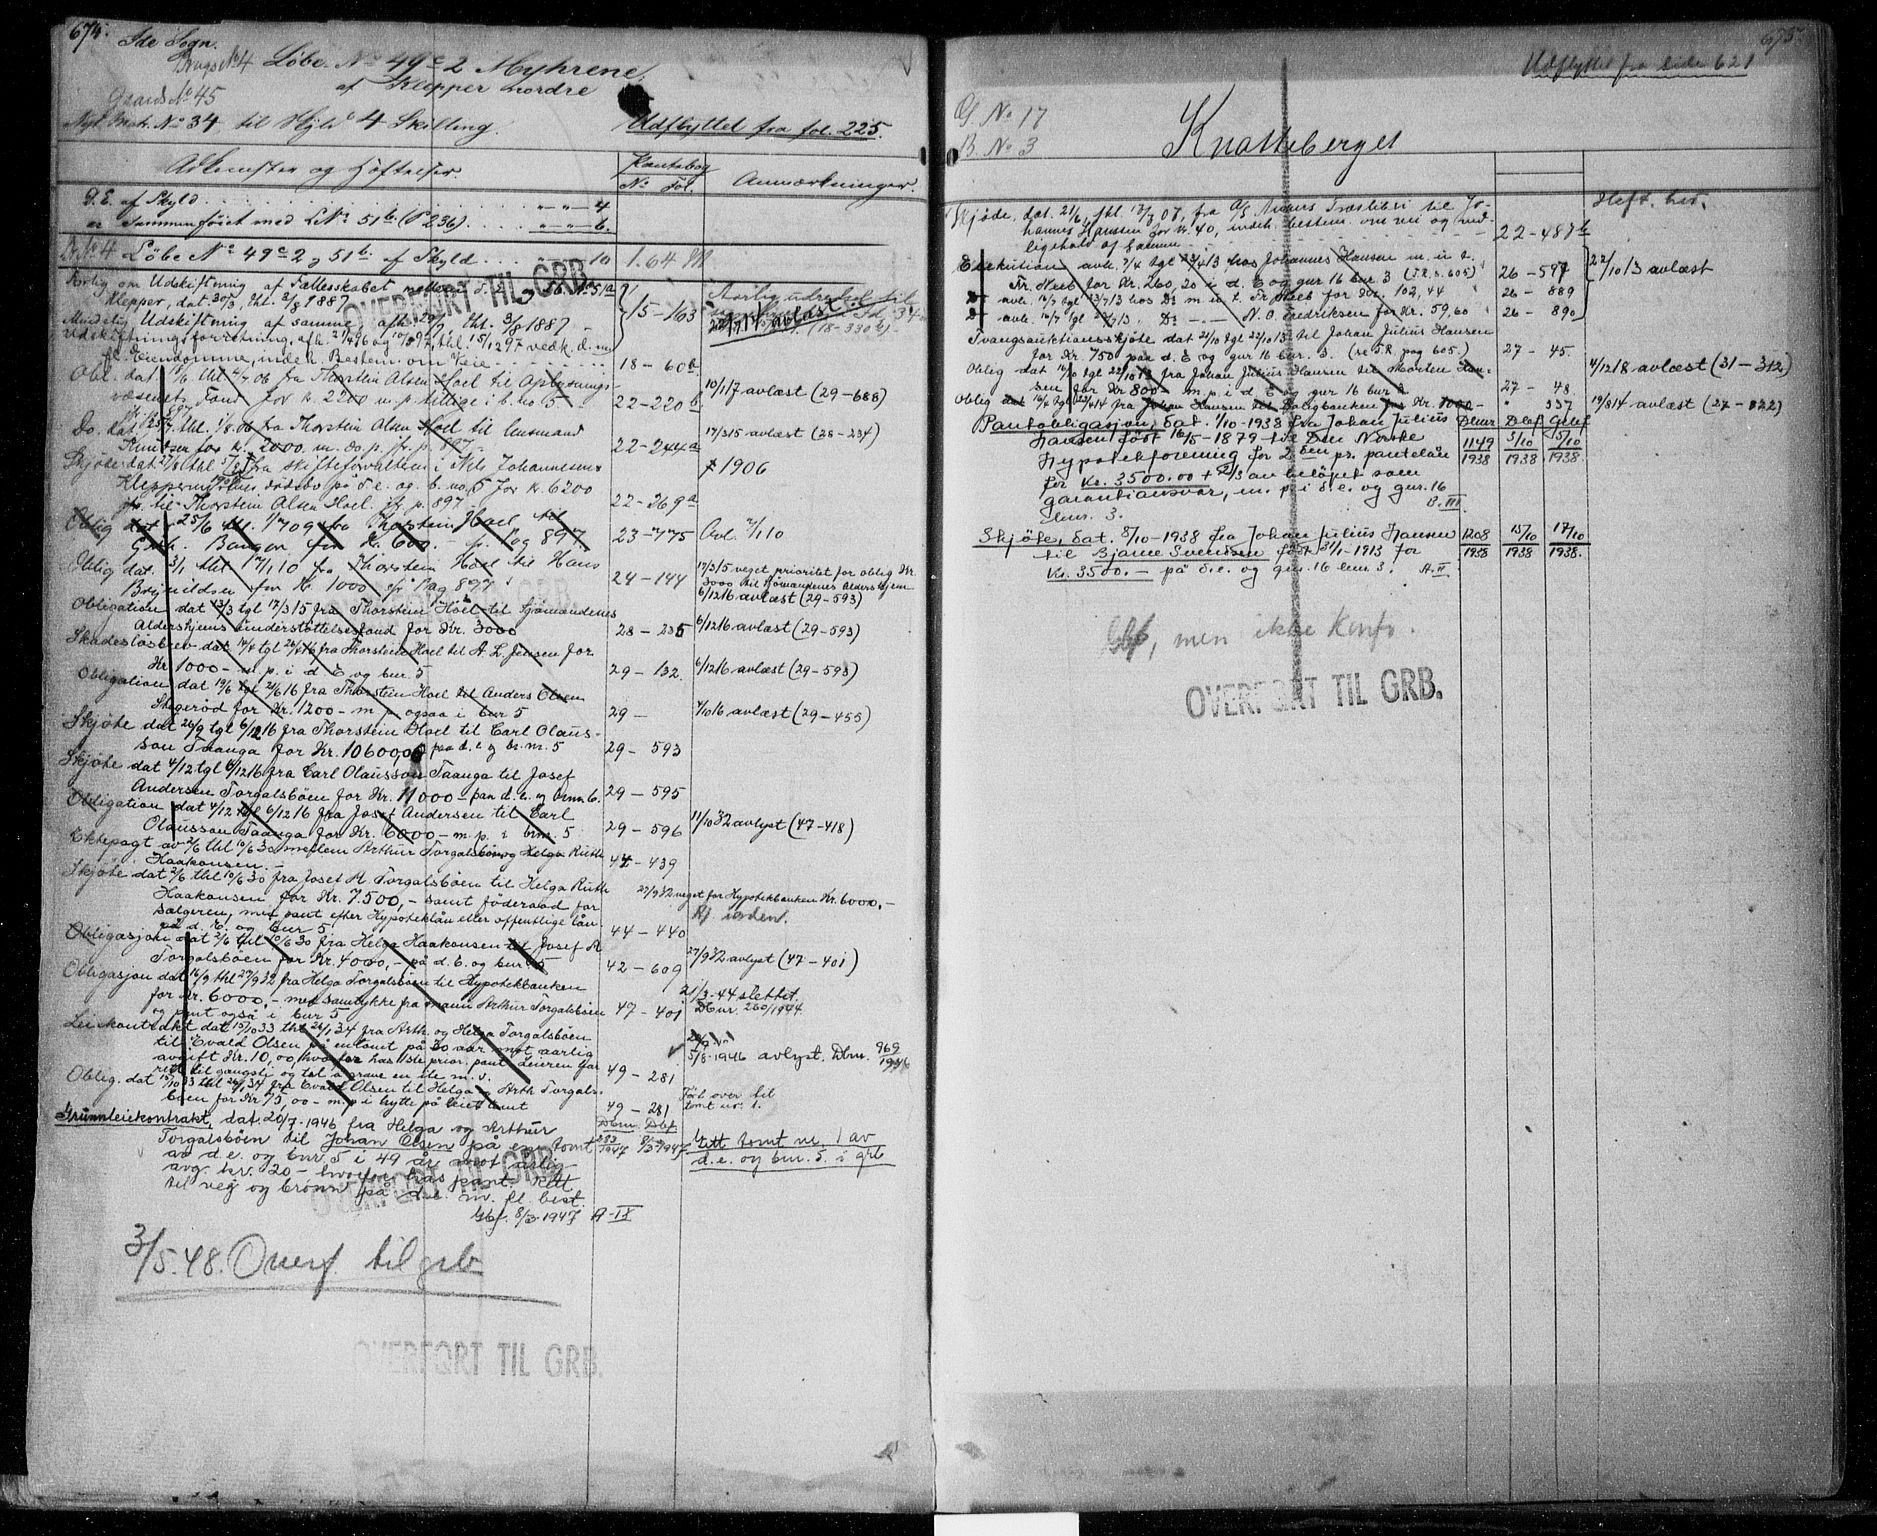 674.
Ide Sogn.
Brugs No 4 Løbe No 49c2 Myhrene,
af Klepper nordre
Gaards No 45
Nyt Matr. No 34, til Skyld 4 Skilling.
Udflyttet fra fol. 225.
Adkomster og Hæftelser.
Pantebog
No Fol.
Anmærkninger.
D. E. af Skyld " - " - 4
er Sammenføiet med L No 51b (P 236) " - " - 6.
B. No 4 Løbe No 49c2 og 51b af Skyld 10
1.64 M
OVERFØRT TIL GRB.
Klepper, dat. 30/3, thl. 3/8 1887
15-163
Mindelig Udskiftning af samme
thl. 3/8 1887
avlæst
18 - 60b
Obl. dat. thl 2/7 06 fra Thorstein Olsen Hoel til Oplysnings-
væsenets Fond for K. 2200 m. p. tillige i b. no 5
22-220b
10/1 17 avlæst (29-688)
Do. dat. 25/7 thl. 1/8 06 fra Thorstein Olsen Hoel til Ensmand
for k. 2000 m. do. p. jfr. p. 897
22-244a
17/3 15 avlæst (28-234)
Skjøte dat. 2/8 thl fra skifteforvalteren i Nils Johannesens
Kleppermyhrens dødsbo på d. e. og b. no 5 for k. 6200
til Thorstein Olsen Hoel jfr. p. 897
22-269a
1906
Oblig dat. 25/6 thl. 1/7 09 fra Thorstein Hoel til
for K. 600. - jfr. Pag 897.
23-775
Avl. 1/1 10
Oblig dat. 3/1 thl 17/1 10 fra Thorstein Hoel til Hans
Brynildsen for K. 1000 jfr Pag 897
24-144
17/3 15 veget prioritet for oblig Kr.
3000 til Sjømandenes Aldershjem
6/12 16 avlæst (29-593)
Obligation dat 13/3 tgl 17/3 15 fra Thorstein Hoel til Sjømandenes
Aldershjems understøttelsesfond for Kr. 3000
28-235
6/12 16 avlæst (29-593)
Skadesløsbrev dat 19/4 tgl 26/4 16 fra Thorstein Hoel til A. L. Jensen for
Kr 1000 - m. p. i d. E og bur. 5
29-132.
6/12 16 avlæst (29-593)
Obligation dat 19/6 tgl 21/6 16 fra Thorstein Hoel til Anders Olsen
Stegerød for Kr. 1200 - m. p. ogsaa i bur 5
29 -
7/10 16 avlæst (29-455)
Skjøte dat 26/9 tgl 6/12 16 fra Thorstein Hoel til Carl Olaus-
son Taanga for Kr. 10600,00 paa d. e og br. nr. 5
29- 593
Skjøte dat 4/12 tgl 6/12 16 fra Carl Olausson Taanga til Josef
Andersen Torgalsbøen for Kr. 11000 - paa d. e. og
29-595
Obligation dat 4/12 tgl 6/12 16 fra Josef Andersen til Carl
Olausson Taanga for Kr. 6000 - m. p. i brn. 5
29-596
11/10 32 avlyst (47-418)
Ektepagt av 2/6 thl 10/6 30 mellem Arthur Torgalsbøen og Helga Ruth
Haakonsen -
44-439
Skjøte dat 2/6 thl 10/6 30 fra Josef A. Torgalsbøen til Helga Ruth
Haakonsen for Kr. 7.500, - samt føderaad for
sælgeren, med pant efter Hypoteklån eller offentlige lån
på d. E. og bur 5
44-440
27/9 32 veget for Hypotekbanken Kr. 6000,-
Obligasjon dat 2/6 thl 10/6 30 fra Helga Haakonsen til Josef A
Torgalsbøen for Kr. 4000, - på d. E. og bur. 5
42-609
27/9 32 avlyst (47-401)
Obligasjon dat 16/9 thl 27/9 32 fra Helga Torgalsbøen til Hypotekbanken
for Kr. 6000,- med samtykke fra mann Arthur Torgalsbøen
og pant også i bur 5
47-401
21/3-44 slettet.
Dbnr. 260/1944
Leiekontrakt dat 19/10 33 thl 24/1 34 fra Arth. og Helga Torgalsbøen
til Evald Olsen på en tomt på 30 aar mot aarlig
avgift Kr. 10, og hvorfor has 1ste prior. pant. Leieren har
rett til gangsti og til å grave en ile m. v.
49-281
5/8-1946 avlyst. Dbnr. 969/1946
Oblig. dat 19/10 33 thl 24/1 34 fra Evald Olsen til Helga og Arth Torgals-
bøen for Kr 75,00 - m. p i hytte på leiet tomt
49-281
Ført over til
tomt nr. 1.
Grunnleiekontrakt, dat. 20/7-1946 fra Helga og Arthur
Dbnr. Dbf
Torgalsbøen til Johan Olsen på en tomt
283/1947 8/3-1947
av d. e. og bnr. 5 i 49 år mot årlig
avg. kr. 20 - hvorfor has pant. Rett
til vej og brønn på d. e. m. fl. best.
Gbf. 8/3-1947 A-IX
Utt tomt nr. 1 av
d. e. og bnr. 5. i grb
OVERFØRT TIL GRB.
3/5.48. Overf til grb
OVERFØRT TIL GRB.
675.
Udflyttet fra side 621
G. No 17
B. No 3
Knatteberget
Heft. her.
Skjøde, dat. 21/6, thl. 12/7 07, fra A/S Ankers Træsliberi til Jo-
hannes Hanssen for kr. 40, indeh. bestem. om vei og ved-
ligehold af samme
22-487b
Exekution avh. 7/4 tgl 23/4 13 hos Johannes Hansen m. u. t.
Fr. Neeb for Kr. 260,20 i d. E og gur 16 bur 3 (T.R. s. 605)
26-597
22/10 13 avlæst
Do avh. 10/7 tgl 23/7 13 hos Do m. u. t. Fr Neeb for Kr. 102,44
26-889
Do avh. 10/7 tgl 23/7 13. Do - - N. O. Fredriksen for Kr. 59,60
26-890
Tvangsauktionsskjøte dat 21/10 tgl 22/10 13 til Johan Julius Hansen
for Kr. 750 paa d. E og gur 16 bur. 3. (se T.R. pag 605.)
27-45
Oblig dat 16/10 tgl 22/10 13 fra Johan Julius Hansen til Morten Han-
sen for Kr 800 - m. p. i d. E og gur 16 bur 3
27-48
4/12 18 avlæst (31-312)
Oblig dat 16/4 tgl 23/4 14 fra Johan Hansen til Bangbanken for Kr. 1000 -
" 337
19/8 14 avlæst (27-822)
Pantobligasjon, dat. 1/10-1938 fra Johan Julius
Dbnr Dbf Gbf
Hansen født 16/5-1879 til Den Norske
1149/1938 5/10 1938 5/10 1938.
Hypotekforening for 2den pr. pantelån
for Kr. 3500.00 + 2/3 av beløpet som
garantiansvar, m. p. i d. e. og gnr. 16
bnr. 3. B. III
Skjøte, dat. 8/10-1938 fra Johan Julius Hansen
1208/1938 15/10 1938 17/10 1938.
til Bjarne Svendsen født 31/1-1913 for
Kr. 3500. - på d.e. og gnr. 16 bnr 3. A.II
Gbf, men ikke Konfr.
OVERFØRT TIL GRB.